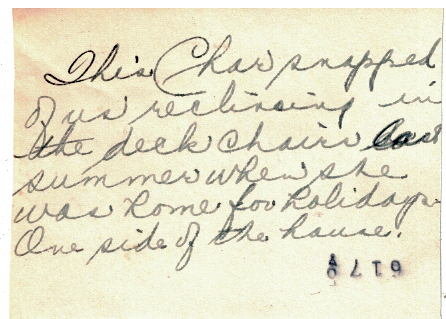 This Char snapped
of us reclinsing in
the deck chairs last
summer when she
was home for holidays.
One side of the house.